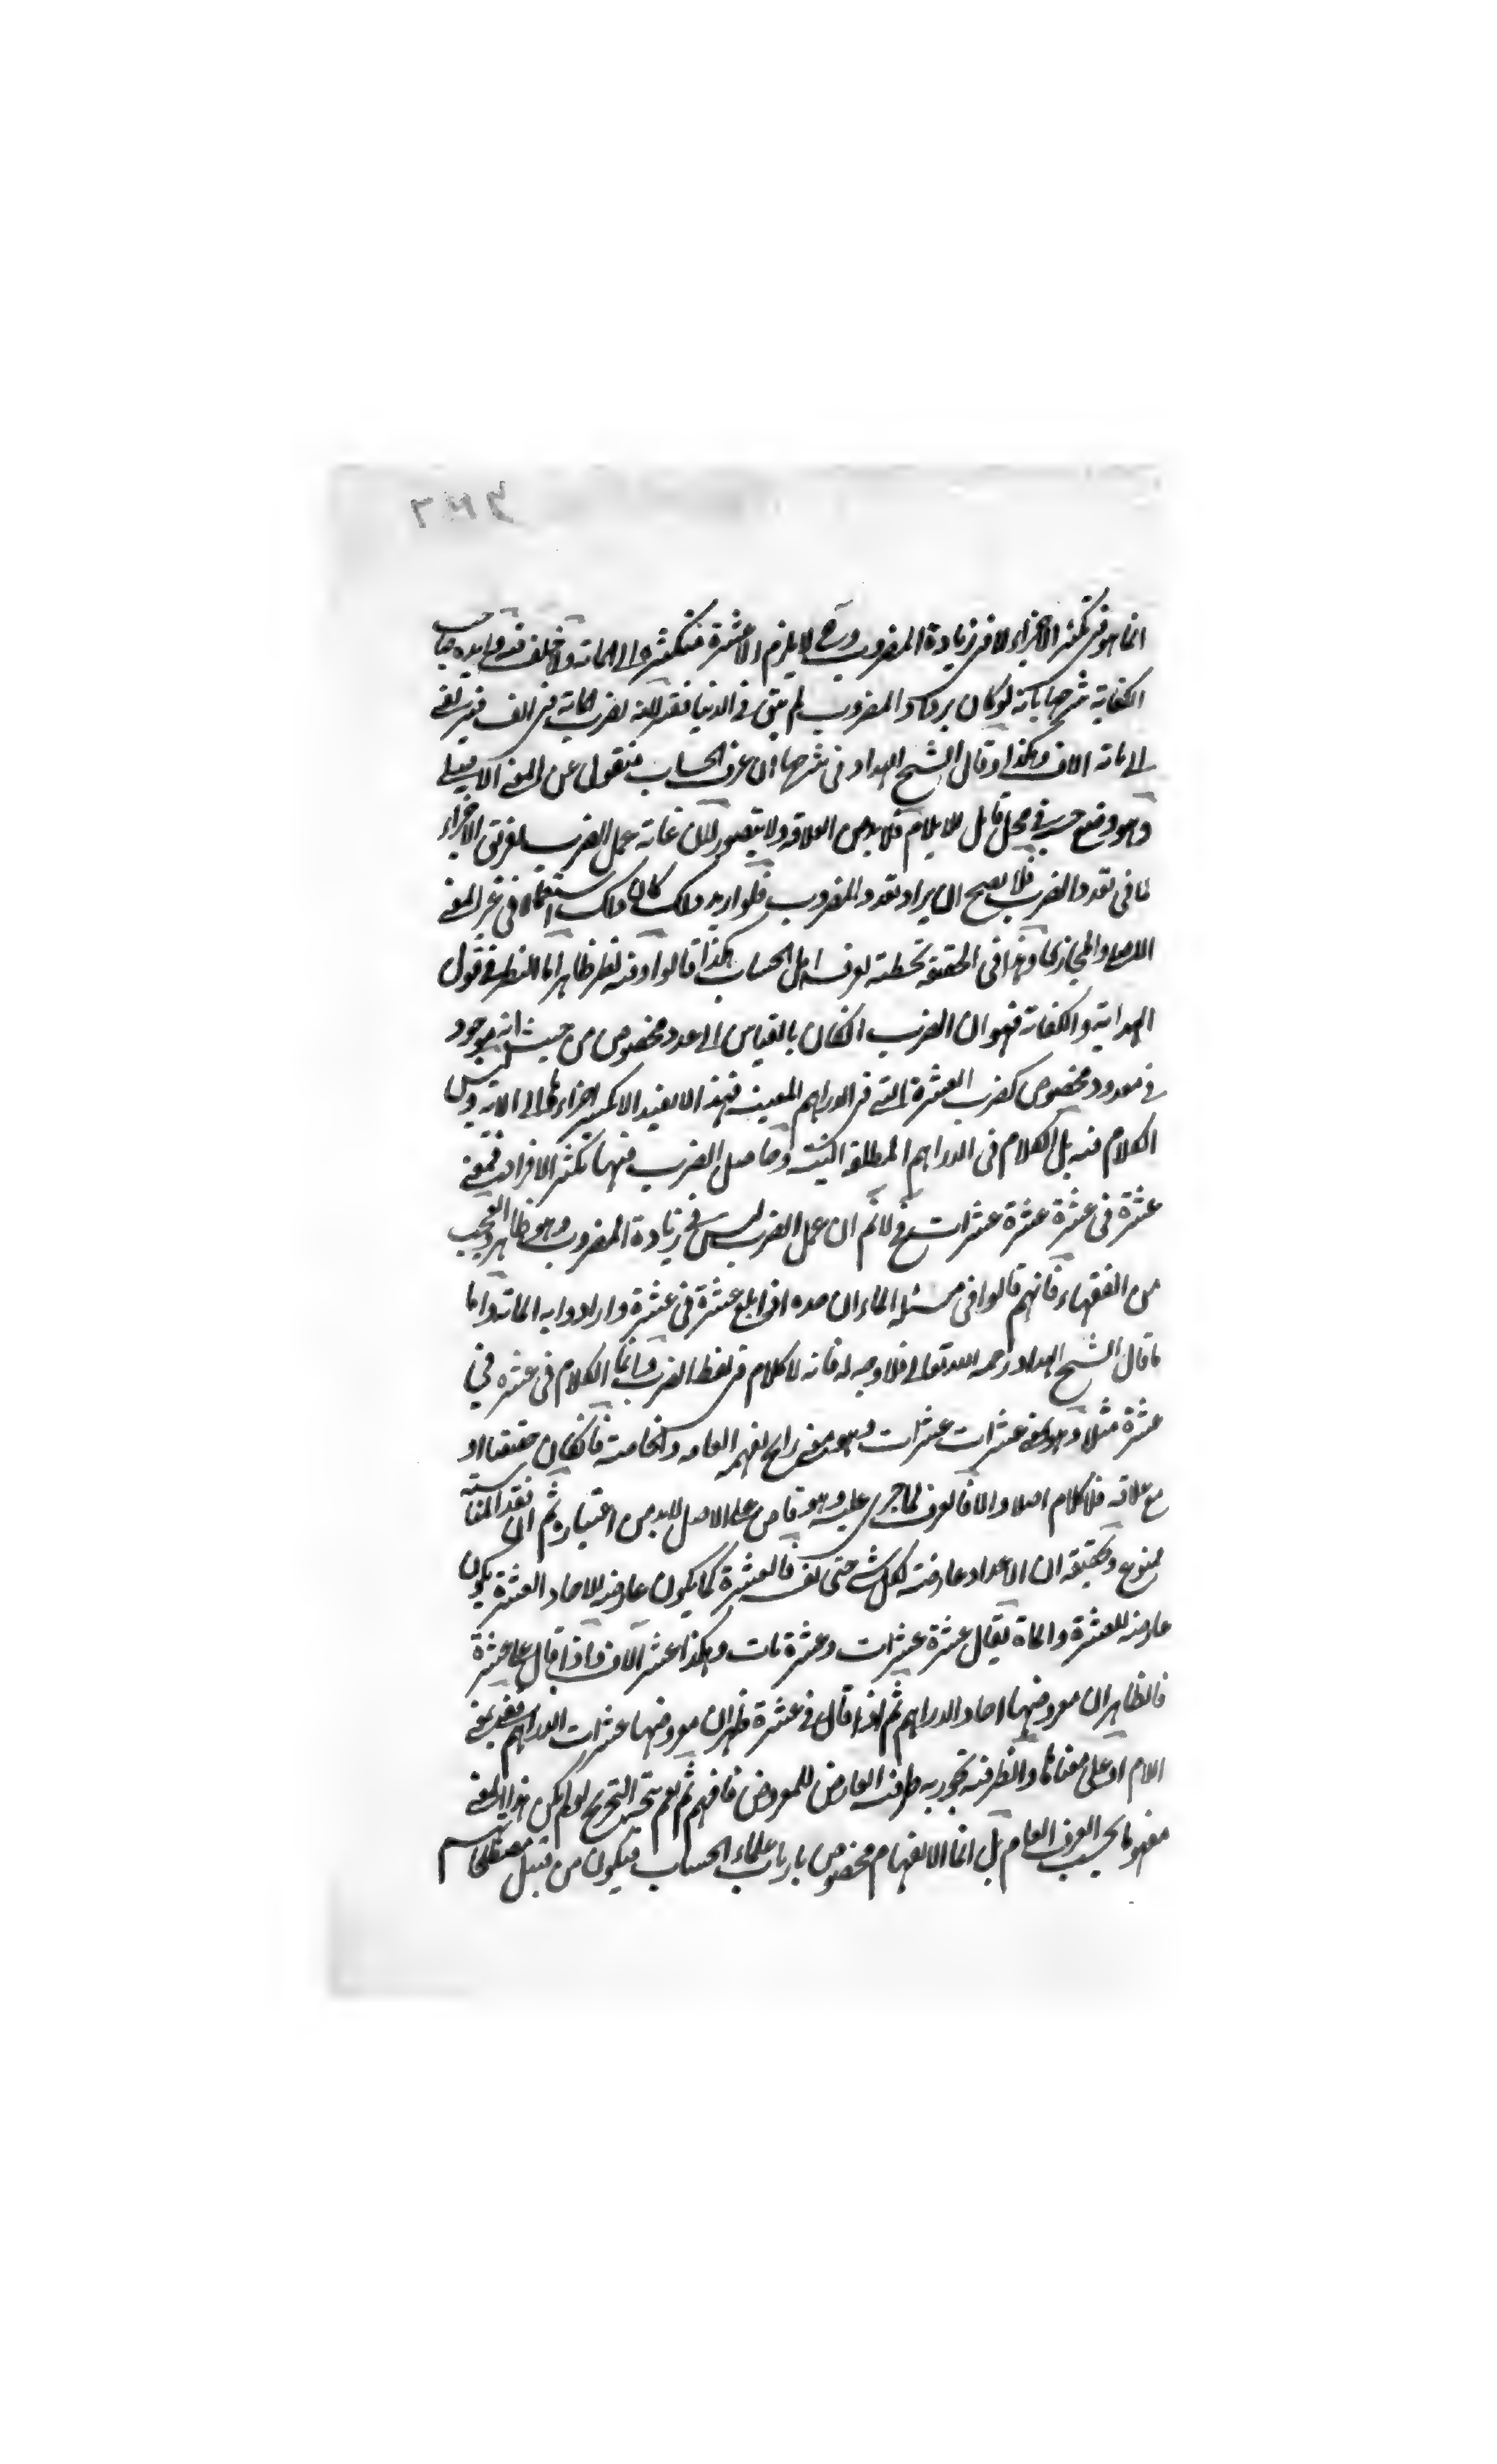 انما هو فى تكثير الاجزاء لا فى زيادة المضروب وح لا يلزم الا عشرة متكثرة الى المائة ولا خلف فيه وايده صاحب
الكفاية شرحها بانه لو كان يزداد المضروب لم يبق فى الدنيا فقير لانه يضرب المائة فى الف فيرتقى
الى مائة الاف وهكذا وقال الشيخ الهداد فى شرحها ان عرف الحساب منقول عن المعنى الاصلى
وهو وضع خشب فى محل قابل للايلام فلا بد من العلاقة ولا يتصور لان غاية عمل الضرب تفريق الاجزاء
لما فى تعدد الضرب فلا يصح ان يراد تعدد المضروب فلو اريد ذلك كان ذلك استعمالا فى غير المعنى
الاصلى والمجازى وهذا فى الحقيقة تخطئة لعرف اهل الحساب هكذا قالوا وفيه نظر ظاهر اما النظر فى قول
الهداية والكفاية فهو ان الضرب انكان بالقياس الى عدد مخصوص من حيث انه موجود
فى معدود مخصوص كضرب العشرة التى فى الدراهم المعينة فهذا لا يفيد الا تكسير اجزاءها الى الماية وليس
الكلام فيه بل الكلام فى الدراهم المطلقة وحاصل الضرب فيها تكثر الافراد فمعنى
عشرة فى عشرة عشرة عشرات فح لا نم ان عمل الضرب ليس فى زيادة المضروب وهو ظاهر والعجب
من الفقهاء فانهم قالوا فى مسئلة الماء ان حده اذا بلغ عشرة فى عشرة وارادوا به المائة واما
ما قال الشيخ الهداد رحمه الله تعالى فلا وجه له فانه لا كلام فى لفظ الضرب وانما الكلام فى عشرة فى
عشرة مثلا وهو بمعنى عشرات عشرات وهو معنى رايج يفهمه العامة والخاصة فانكان حقيقيا او
مع علاقة فلا كلام اصلا والا فالعرف لما جرى عليه وهو قاض على الاصل لا بد من اعتباره ثم ان فقد المناسبة
ممنوع وتحقيقه ان الاعداد عارضة لكل شئ حتى فالعشرة كما يكون عارضة للاحاد العشرة يكون
عارضة للعشرة والماة يقال عشرة عشرات وعشرة مات وهكذا عشر الاف فاذا قال على عشرة
فالظاهر ان معروضها احاد الدراهم ثم اذا قال فى عشرة ظهر ان معروضها عشرات الدراهم ففى بمعنى
اللام او على معناها والظرفية تجوز به ظرفية العارض للمعروض فافهم ثم نعم يتجه التخريج لو لم يكن هذا المعنى
مفهوما بحسب العرف العام بل انما الانفهام مخصوص بارباب علماء الحساب فيكون من قبيل مصطلحاتهم